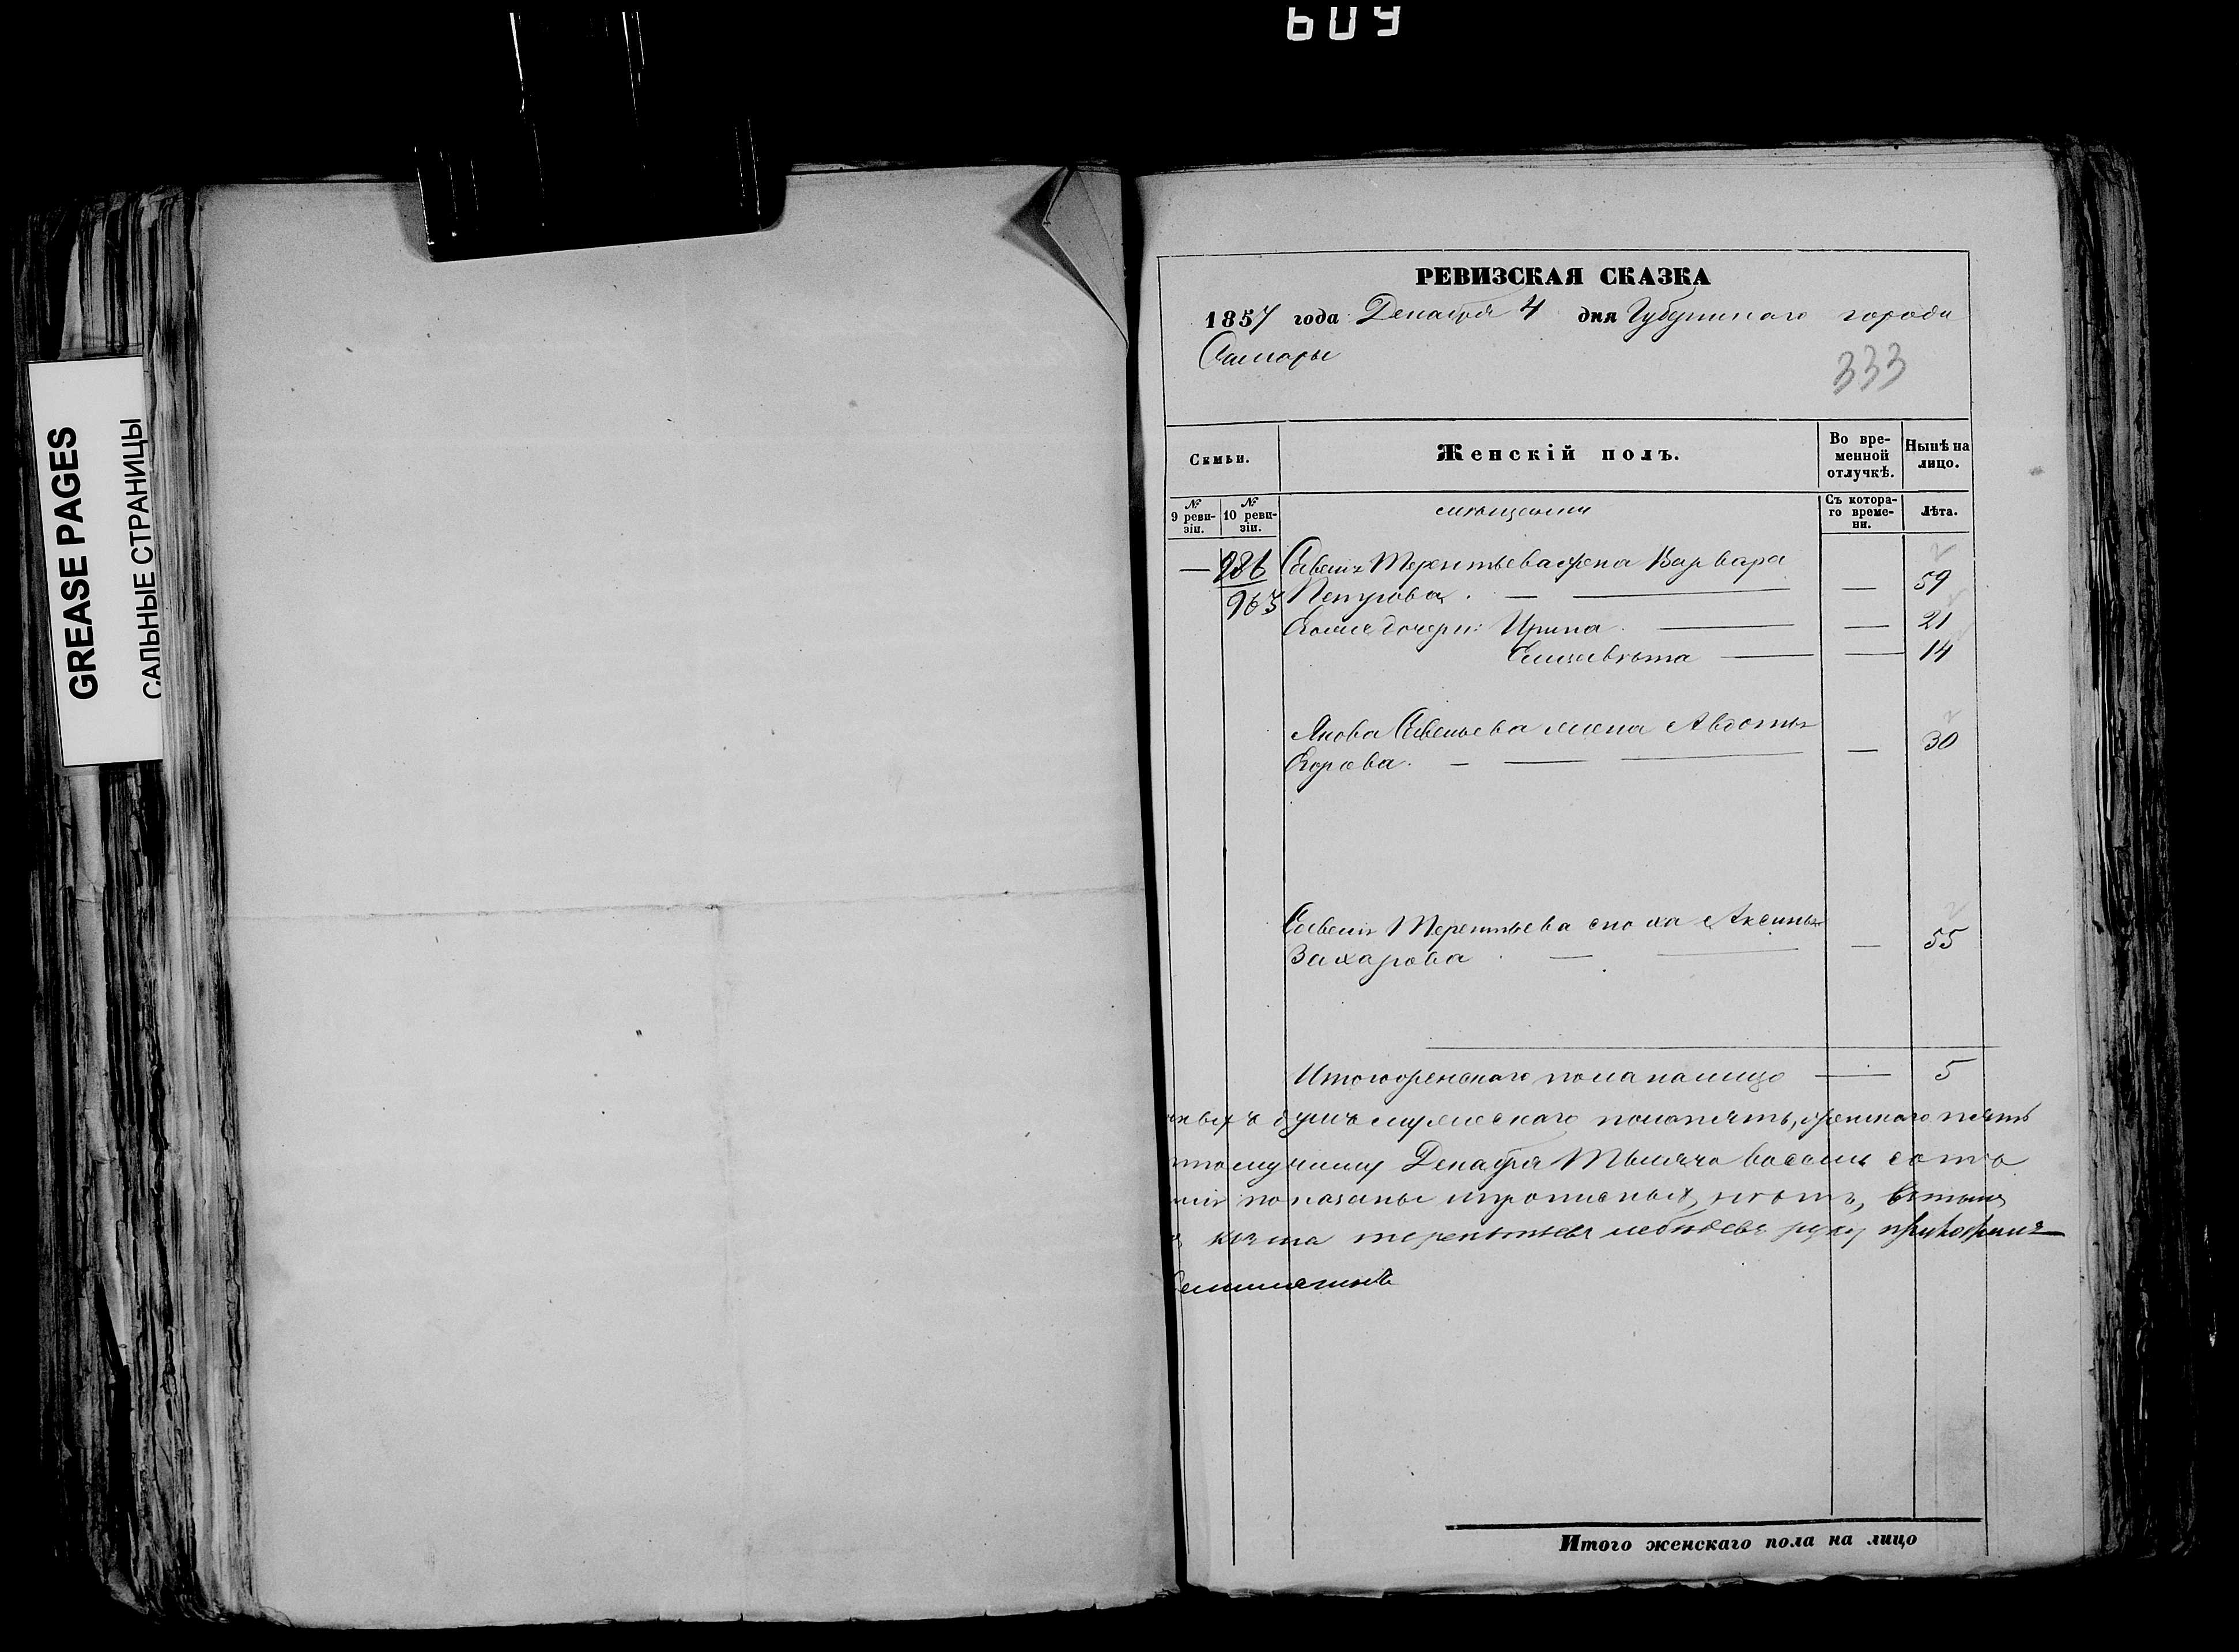 609
GREASE PAGES
САЛЬНЫЕ СТРАНИЦЫ
РЕВИЗСКАЯ СКАЗКА
1857 года Декабря 4 дня Губернскаго города
Самары
333
Семьи.
Женскій полъ.
Во вре-
менной
отлучкѣ.
Нынѣ на
лицо.
№
9 реви-
зіи.
№
10 реви-
зіи.
Съ котора-
го време-
ни.
Лѣта.
— 986 Савелія Терентьева жена Варвара
963 Петрова — — — 59
дочери: Ирина — — 21
Елизавѣта — — 14
Якова Савельева жена Авдотья
Егорова — — — — 30
Савелія Терентьева сноха Аксинья
Захарова — — — 55
Итого женскаго пола на лицо — 5
душъ мужескаго пола пять, женскаго пять
Декабря Тысяча восемь сотъ
показаны и прописныхъ нѣтъ, въ томъ
терентьевъ лебедевъ руку приложилъ
Итого женскаго пола на лицо